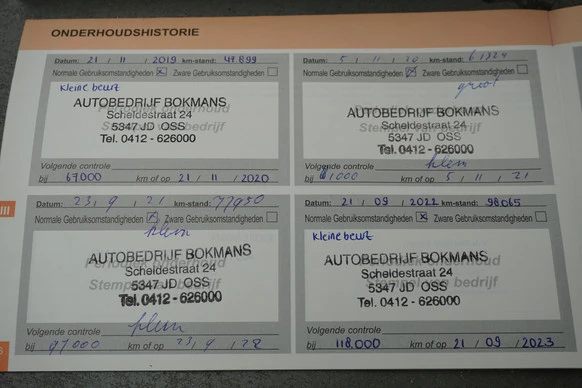 ONDERHOUDSHISTORIE
Datum: 21 / 11 / 2019 km-stand: 49.899
Normale Gebruiksomstandigheden Zware Gebruiksomstandigheden
Kleine beurt
AUTOBEDRIJF BOKMANS
Scheldestraat 24
5347 JD OSS
Tel. 0412 - 626000
Volgende controle
bij 67.000 km of op 21 / 11 / 2020
Datum: 5 / 11 / 20 km-stand:
Normale Gebruiksomstandigheden Zware Gebruiksomstandigheden
groot
AUTOBEDRIJF BOKMANS
Scheldestraat 24
5347 JD OSS
Tel. 0412 - 626000
klein
Volgende controle
bij 81000 km of op 5 / 11 / 21
III
Datum: 23 / 9 / 21 km-stand: 77950
Normale Gebruiksomstandigheden Zware Gebruiksomstandigheden
klein
AUTOBEDRIJF BOKMANS
Scheldestraat 24
5347 JD OSS
Tel. 0412 - 626000
klein
Volgende controle
bij 97000 km of op 23 / 9 / 22
Datum: 21 / 09 / 2022 km-stand: 98065
Normale Gebruiksomstandigheden Zware Gebruiksomstandigheden
Kleine beurt
AUTOBEDRIJF BOKMANS
Scheldestraat 24
5347 JD OSS
Tel. 0412 - 626000
Volgende controle
bij 118.000 km of op 21 / 09 / 2023